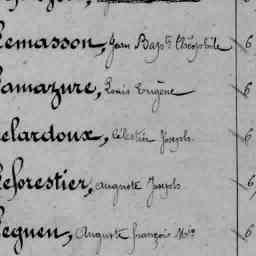 Lemasson, Jean Bap.te Théophile 6
Lamazure, Louis Eugène 6
Celestin Joseph
Leforestier, Auguste Joseph 6
Leguen, Auguste françois M.ie 6